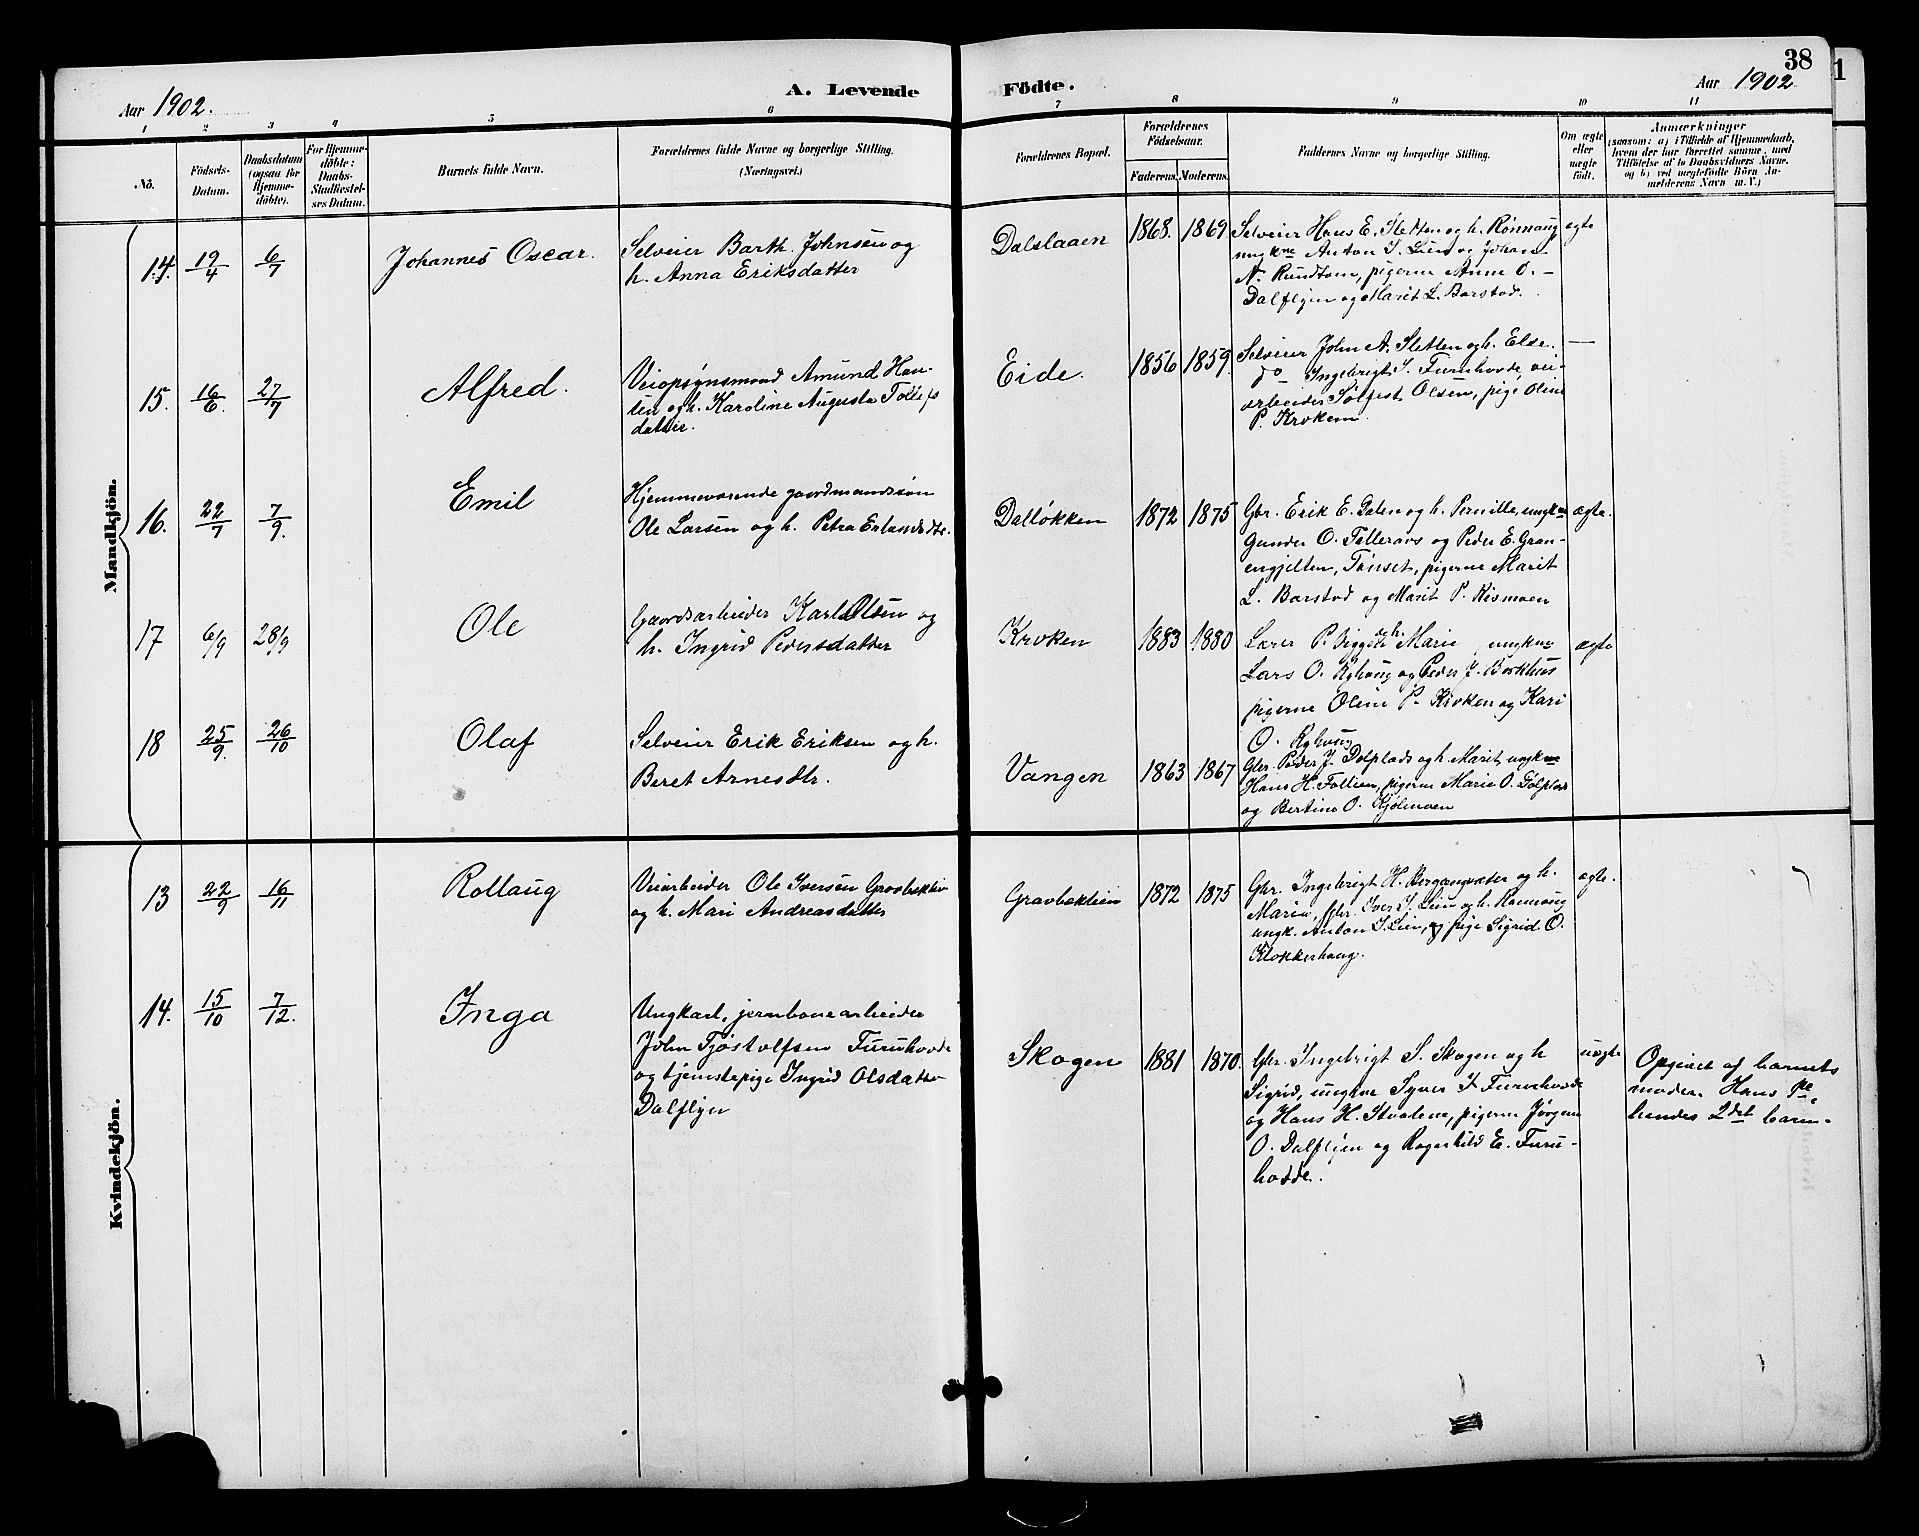 38
1
Aar 1902.
A. Levende
Födte.
Aar 1902
1 2 3 4 5 6 7 8 9 10 11
No.
Födsels-
Datum.
Daabsdatum
(ogsaa for
Hjemme-
döbte).
For Hjemme-
döbte:
Daabs-
Stadfæstel-
ses Datum.
Barnets fulde Navn.
Forældrenes fulde Navne og borgerlige Stilling.
(Næringsvei.)
Forældrenes Bopæl.
Forældrenes
Födselsaar.
Faderens. Moderens.
Faddernes Navne og borgerlige Stilling.
Om ægte
eller
uægte
födt.
Anmærkninger
(saasom: a) i Tilfælde af Hjemmedaab,
hvem der har forrettet samme, med
Tilföielse af to Daabsvidners Navne,
og b) ved uægtefödte Börn An-
melderens Navn m. V.)
Mandkjön.
14. 19/4 6/7
Johannes Oscar.
Selveier Barth. Johnsen og
h. Anna Eriksdatter
Dalslaaen
1868. 1869.
Selveier Hans E. Sletten og h. Rønnaug
ungkne Anton I. Lien og Johan
N. Rundtom, pigerne Anne O. -
Dalflyen og Marit L. Barstad.
ægte
15. 16/6. 27/7
Alfred.
Veiopsynsmand Amund Han-
sen og h. Karoline Augusta Tollefs
datter.
Eide.
1856 1859
Selveier John A. Sletten og h. Else.
do - Ingebrigt I. Furuhovde, vei-
arbeider Solfest Olsen, pige Oline
P. Kroken.
—
16. 22/7 7/9.
Emil
Hjemmeværende gaardmandssøn
Ole Larsen og h. Petra Erlandsdtr.
Dalløkken
1872 1875
Gbr. Erik E. Dalen og h. Pernille, ungkne
Gunder O. Tolleraas og Peder E. Gran-
engjelten, Tønset, pigerne Marit
L. Barstad og Marit P. Rismoen
ægte.
17 6/9 28/9
Ole
Gaardsarbeider Karl Olsen og
h. Ingrid Pedersdatter
Kroken
1883 1880
Lærer P. og h. Marie, ungkne
Lars O. Ryhaug og Peder J. Borkhus
pigerne Oline P. Kroken og Kari
O. Ryhaug
ægte
18 25/9. 26/10
Olaf
Selveier Erik Eriksen og h.
Beret Arnesdtr.
Vangen
1863 1867
Gbr. Peder J. Dølplads og h Marit ungkne
Hans H. Follien, pigerne Marie O. Dølplads
og Bertine O. Kjølmoen
Kvindekjön.
13 22/9 16/11
Rollaug
Veiarbeider Ole Iversen Gravbæklien
og h. Mari Andreasdatter
Gravbæklien
1872 1875
Gbr. Ingebrigt H. og h.
Marie, Gbr. Iver I. Lien og h. Rønnaug
ungk. Anton I. Lien, og pige Sigrid O.
Klokkerhaug.
ægte.
14. 15/10 7/12.
Inga
Ungkarl, jernbanearbeider
John Tjøstolfsen Furuhovde
og tjenestepige Ingrid Olsdatter
Dalflyen
Skogen
1881 1870.
Gbr. Ingebrigt S. Skogen og h
Sigrid, ungkne Syver I Furuhovde
og Hans H. Stualene, pigerne Jørgine
O. Dalflyen og Ragnhild E. Furu-
hovde.
uægte
Opgivet af barnets
moder. Hans 1ste,
hendes 2det barn.